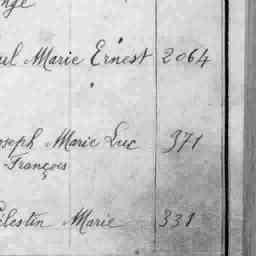 nge
ul Marie Ernest 2064
oseph Marie Luc 371
François
élestin Marie 331